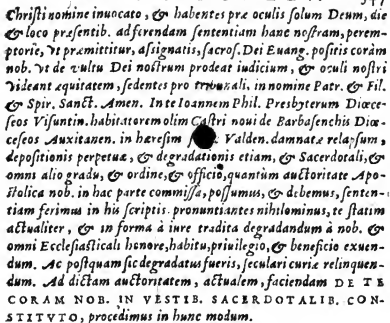 Christi nomine inuocato, & habentes præ oculis solum Deum, die
& loco præsentib. ad ferendam sententiam hanc nostram, perem-
ptorie, vt præmittitur, assignatis, sacros. Dei Euang. positis coràm
nob. vt de vultu Dei nostrum prodeat iudicium, & oculi nostri
videant æquitatem, sedentes pro tribunali, in nomine Patr. & Fil.
& Spir. Sanct. Amen. In te Ioannem Phil. Presbyterum Diœce-
seos Visuntin. habitatorem olim Castri noui de Barbasenchis Diœ-
ceseos Auxitanen. in hæresim Valden. damnatæ relapsum,
depositionis perpetuæ, & degradationis etiam, & Sacerdotali, &
omni alio gradu, & ordine, & officio, quantùm auctoritate Apo-
stolica nob. in hac parte commissa, possumus, & debemus, senten-
tiam ferimus in his scriptis. pronuntiantes nihilominus, te statim
actualiter, & in forma à iure tradita degradandum à nob. &
omni Ecclesiasticali honore, habitu, priuilegio, & beneficio exuen-
dum. Ac postquam sic degradatus fueris, seculari curiæ relinquen-
dum. Ad dictam auctoritatem, actualem, faciendam DE TE
CORAM NOB. IN VESTIB. SACERDOTALIB. CON-
STITVTO, procedimus in hunc modum.